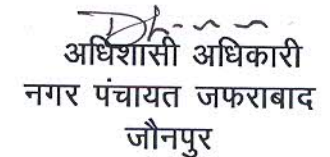 अधिशासी अधिकारी
नगर पंचायत जफराबाद
जौनपुर